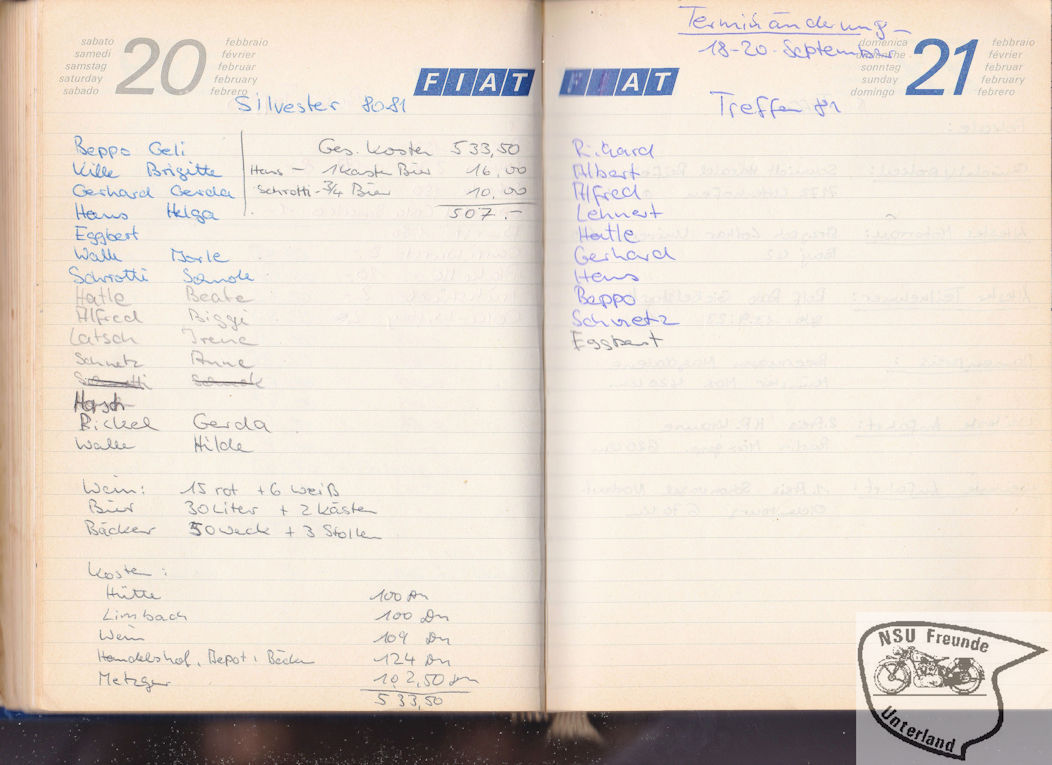 sabato
samedi
samstag
saturday
sabado
20
febbraio
février
februar
february
febrero
FIAT
Silvester 80 81
Beppo Geli
Kille Brigitte
Gerhard Gerda
Hans Helga
Eggbert
Walle
Schrotti
Hatle Beate
Alfred Biggi
Latsch Irene
Schnetz Anne
Horsch
Rickel Gerda
Walle Hilde
Ges. Kosten 533,50
Hans - 1 Kasten Bier 16,00
Schrotti - 3/4 Bier 10,00
507.-
Wein: 15 rot + 6 weiß
Bier 30 Liter + 2 Kästen
Bäcker 50 Weck + 3 Stollen
Kosten:
Hütte 100 Dm
Limbach 100 Dm
Wein 109 Dm
Handelshof, Depot, Bäcker 124 Dm
Metzger 102,50 Dm
533,50
Terminänderung
18-20. September
FIAT
domenica
dimanche
sonntag
sunday
domingo
21
febbraio
février
februar
february
febrero
Treffen 81
Richard
Albert
Alfred
Lehnert
Hatle
Gerhard
Hans
Beppo
Schnetz
Eggbert
NSU Freunde
Unterland